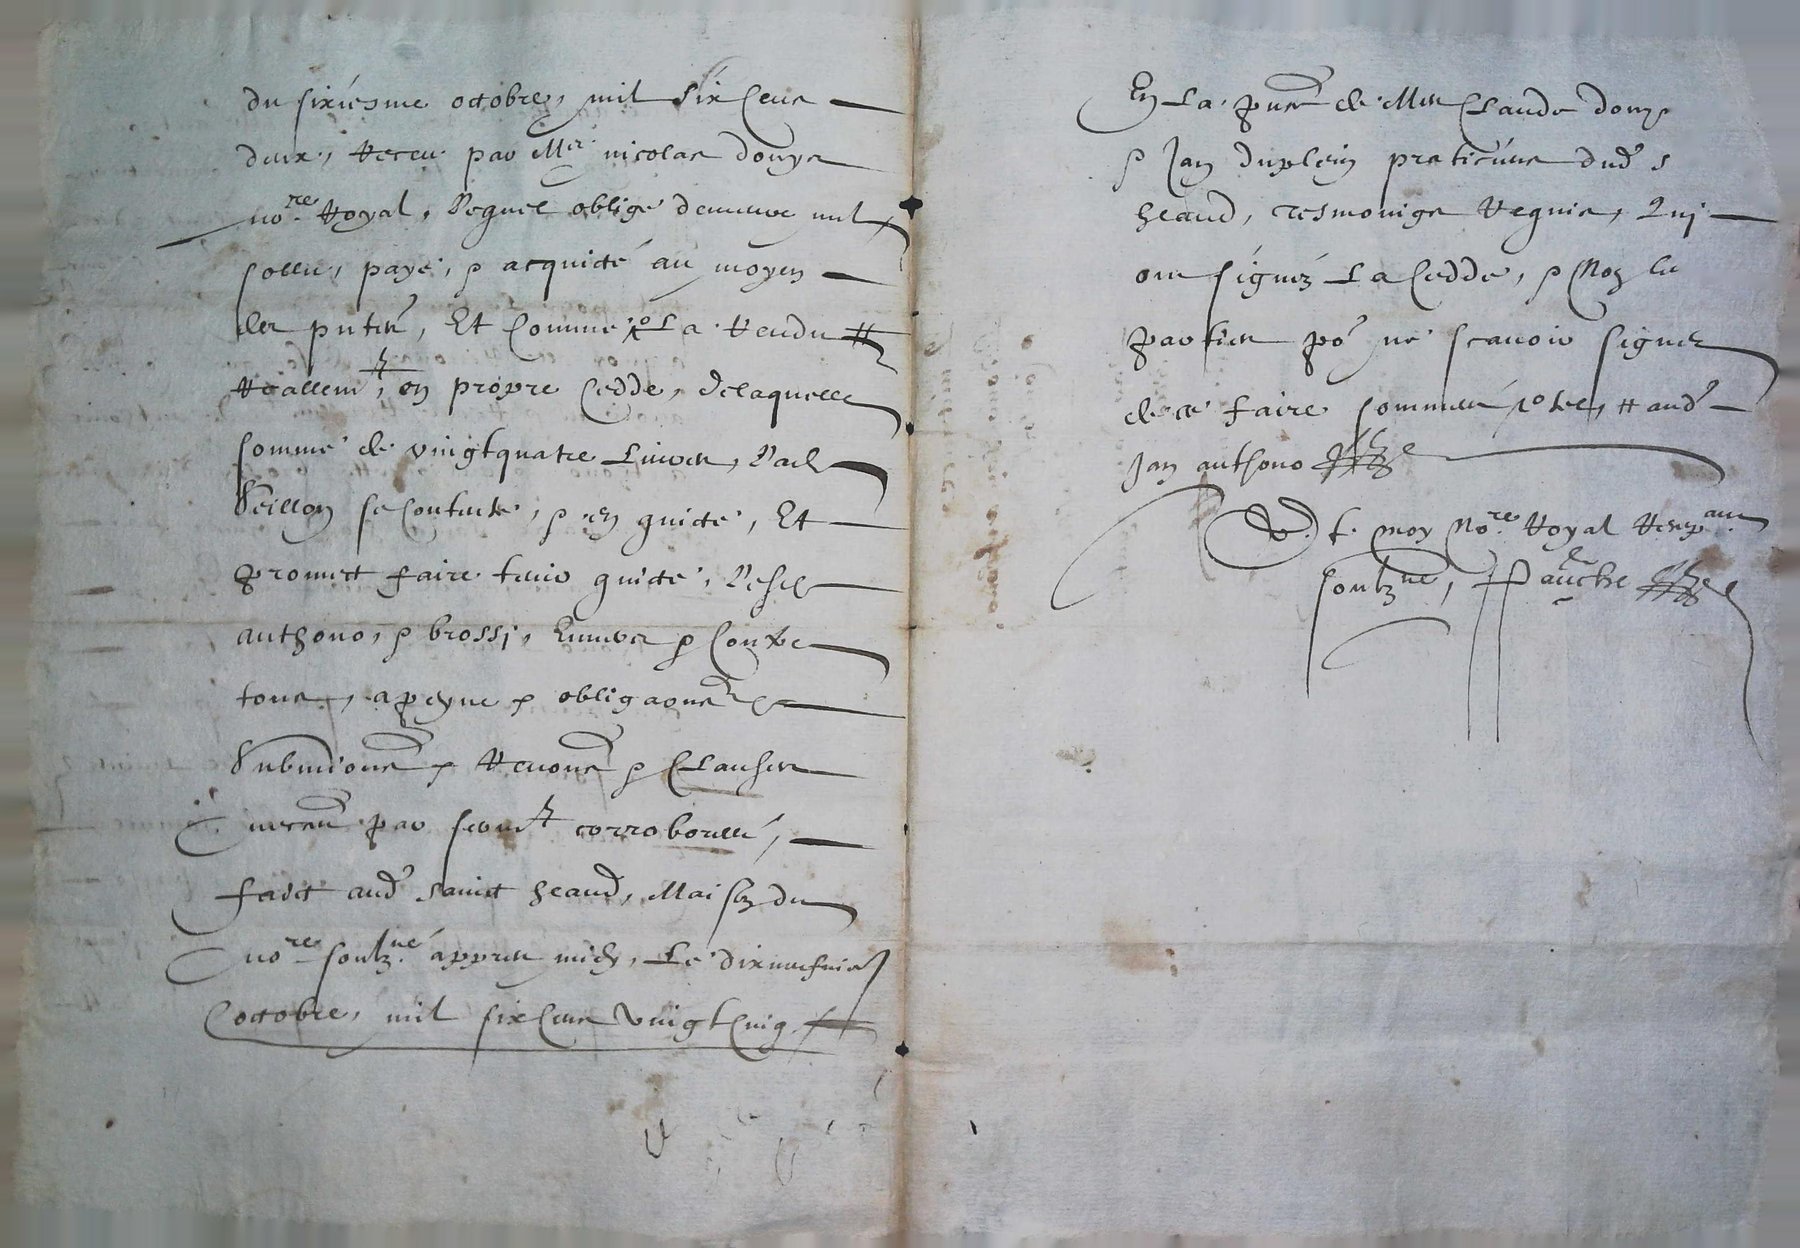 du sixiesme octobre, mil six cens
deux, receu par Mre nicolas douys
nore Royal, Lequel obligé demeure nul
sollu, payé, & acquicté au moyen
des pntes, Et comme La rendu
reallemt, en propre cedde, delaquelle
somme de vingtquatre Livres, Lad
Seillon se contente, & en quicte, Et
promect faire tenir quicte, Lesd
anthono, & brossj, Envers & contre
tous, a peyne & obligaons
Submions & Renons & Clauses
necess par sermt corroborees,
faict aud sainct heand, Maison du
nore soubzné appres midy, Le dixneufvie
octobre, mil six cens vingt cinq
En La pnce de Mes Claude douys
& Jan duplein praticiens dud s
heand, tesmoings requis, Qui
ont signéz La cedde, & Non les
parties po ne scavoir signer
de ce faire sommés
Jan anthono
Et moy Nore Royal Recepant
soubzné, Pauche